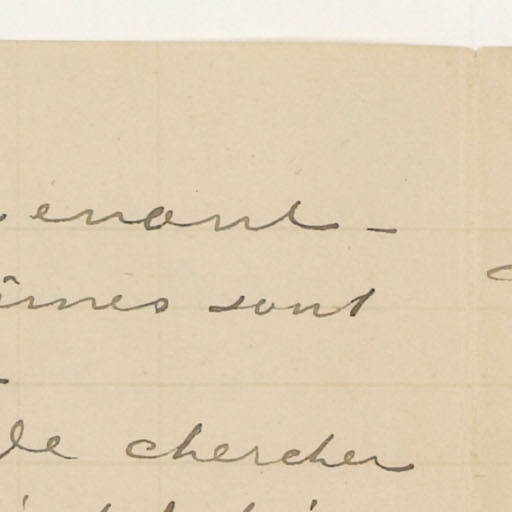 enant -
îmes sont
de chercher